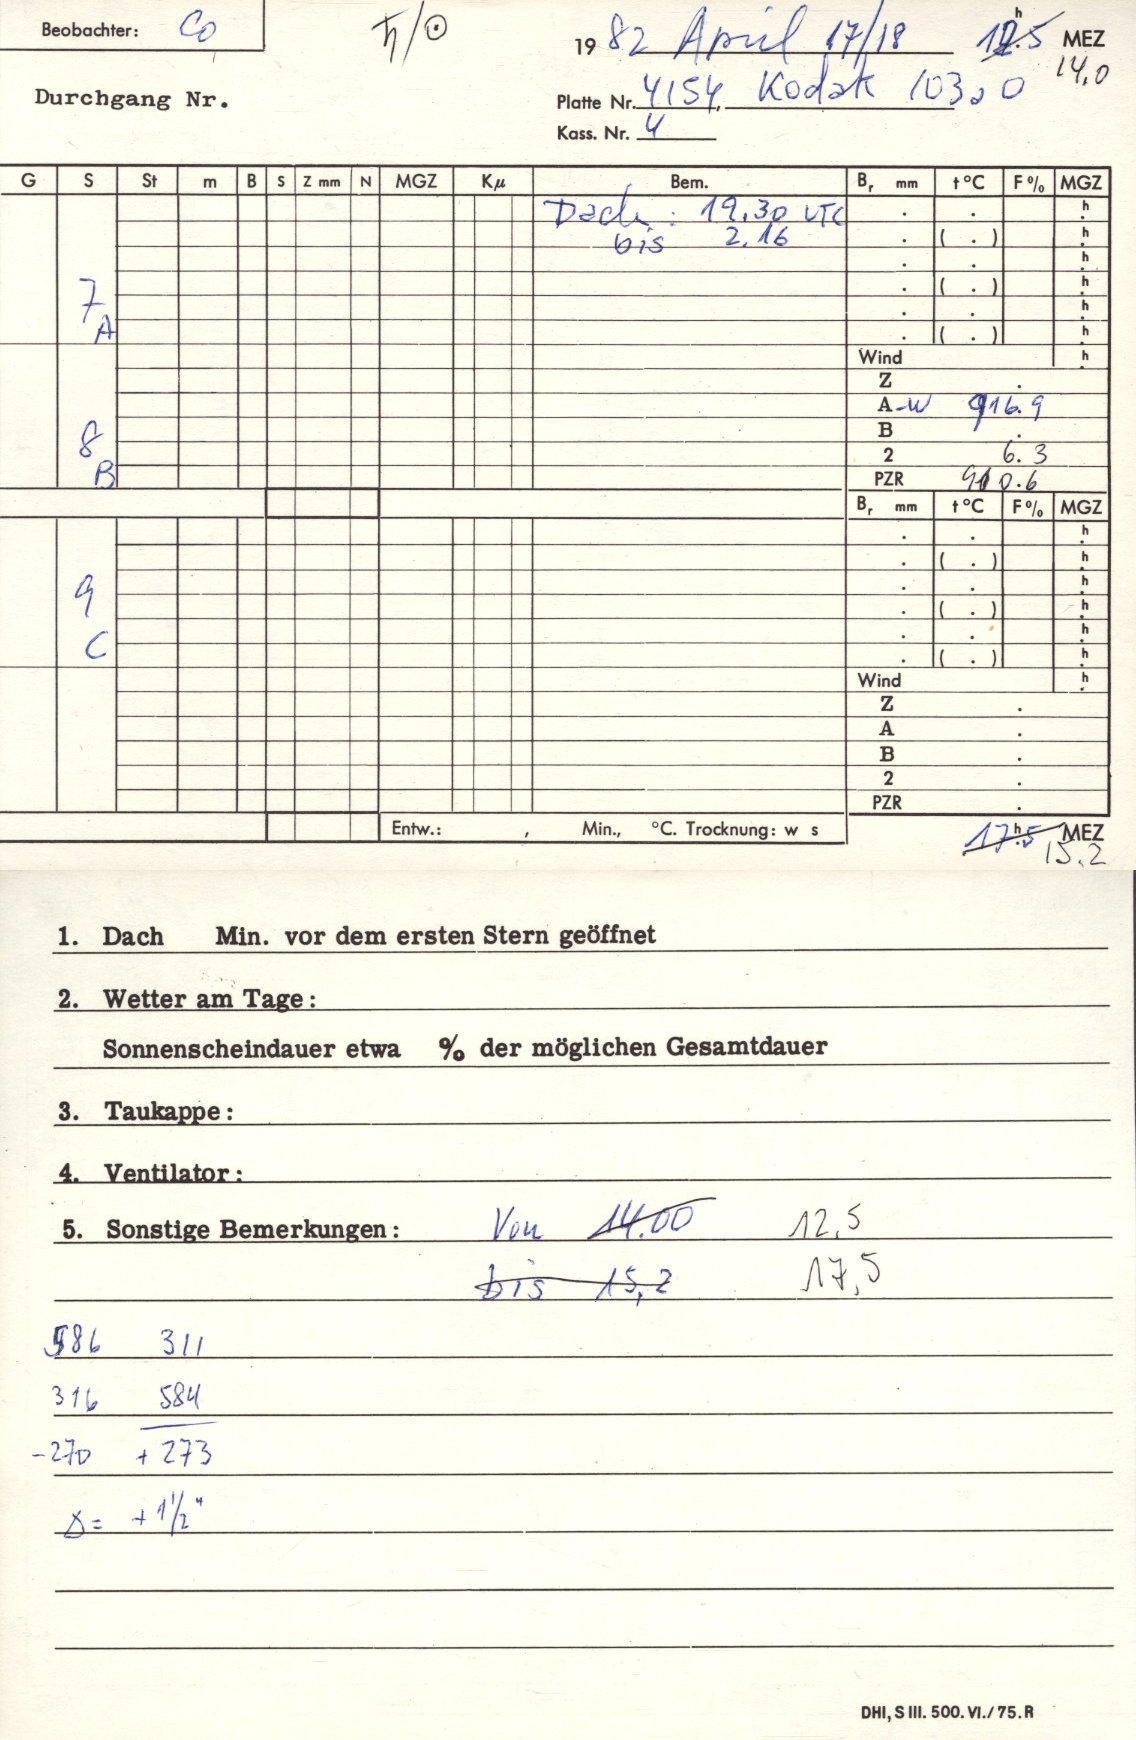 Beobachter: Co ♄/☉ 1982 April 17/18 12.5ʰ MEZ
14,0
Durchgang Nr. Platte Nr. 4154, Kodak 103aO
Kass. Nr. 4
G S St m B S Z mm N MGZ Kµ Bem. Bᵣ mm t °C F % MGZ
Dach: 19.30 UTC . . h
bis 2.16 . ( . ) h
. . h
7 . ( . ) h
. . h
A . ( . ) h
Wind h
Z .
A-W 916.9
8 B .
2 6.3
B PZR 910.6
Bᵣ mm t °C F % MGZ
. . h
. ( . ) h
. . h
9 . ( . ) h
. . h
C . ( . ) h
Wind h
Z .
A .
B .
2 .
PZR .
Entw.: , Min., °C. Trocknung: w s
17.5ʰ MEZ
15.2
1. Dach Min. vor dem ersten Stern geöffnet
2. Wetter am Tage:
Sonnenscheindauer etwa % der möglichen Gesamtdauer
3. Taukappe:
4. Ventilator:
5. Sonstige Bemerkungen: Von 14.00 12,5
bis 15,2 17,5
586 311
316 584
-270 + 273
Δ = + 1 1/2"
DHI, S III. 500. VI./75. R